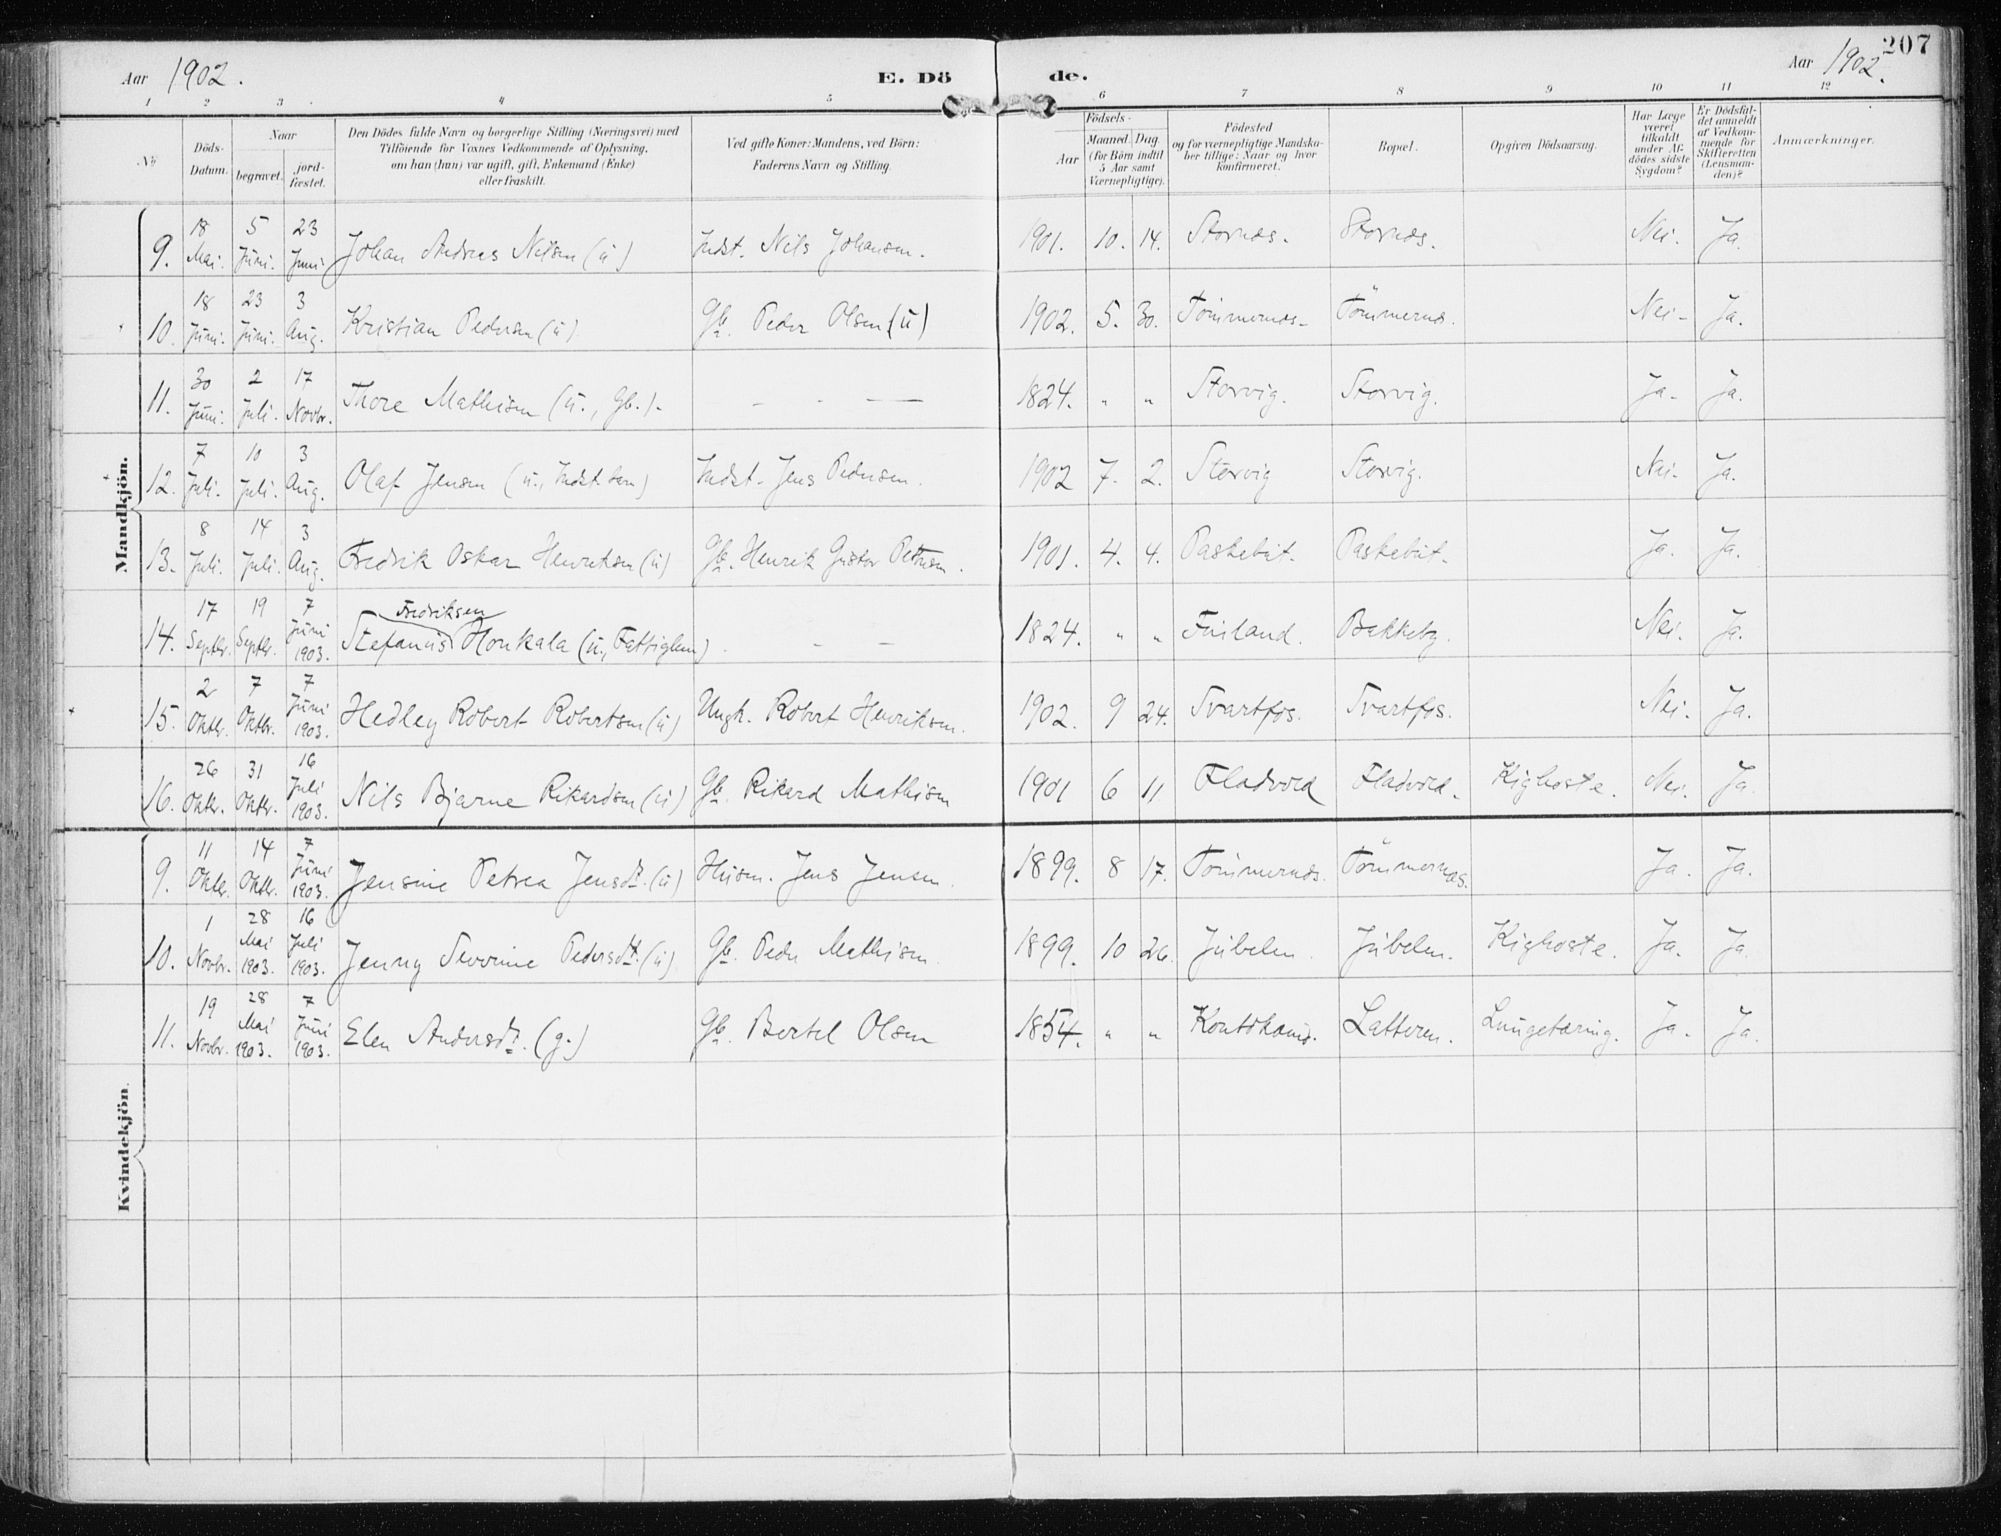 207
Aar 1902. E. Dö de. Aar 1902.
1 2 3 4 5 6 7 8 9 10 11 12
No
Döds-
Datum.
Naar
begravet.
jord-
fæstet.
Den Dödes fulde Navn og borgerlige Stilling (Næringsvei) med
Tilföiende for Voxnes Vedkommende af Oplysning,
om han (hun) var ugift, gift, Enkemand (Enke)
eller fraskilt.
Ved gifte Koner: Mandens, ved Börn:
Faderens Navn og Stilling.
Födsels-
Aar
Maaned. Dag.
(for Börn indtil
5 Aar samt
Værnepligtige).
Födested
og for værnepligtige Mandska-
ber tillige: Naar og hvor
konfirmeret.
Bopæl.
Opgiven Dödsaarsag.
Har Læge
været
tilkaldt
under Af-
dödes sidste
Sygdom?
Er Dödsfal-
det anmeldt
af Vedkom-
mende for
Skifteretten
(Lensman-
den)?
Anmærkninger.
Mandkjön.
9. 18 Mai. 5 Juni. 23 Juni Johan Andreas Nilsen (u) Indst. Nils Johansen. 1901. 10. 14. Stornæs. Stornæs. Nei. Ja.
10. 18 Juni. 23 Juni. 3 Aug. Kristian Pedersen (u) Gb. Peder Olsen (u) 1902. 5. 30. Tömmernæs. Tömmernæs. Nei. Ja.
11. 30 Juni. 2 Juli. 17 Novbr. Thore Mathisen (u., Gb.). - - — 1824. " " Storvig. Storvig. Ja. Ja.
12. 7 Juli. 10 Juli. 3 Aug. Olaf Jensen (u., Indst. søn) Indst. Jens Pedersen. 1902 7. 2. Storvig Storvig. Nei. Ja.
13. 8 Juli. 14 Juli. 3 Aug. Fredrik Oskar Henriksen (u) Gb. Henrik Gustav Pettersen. 1901. 4. 4. Paskebut. Paskebut. Ja. Ja.
14. 17 Septbr. 19 Septbr. 7 Juni 1903. Stefanus Fredriksen Honkala (u., Fattiglem). - - 1824. " " Finland. Bakkeby. Nei. Ja.
15. 2 Oktbr. 7 Oktbr. 7 Juni 1903. Hedley Robert Robertsen (u) Ungk. Robert Henriksen. 1902. 9 24. Svartfos. Svartfos. Nei. Ja.
16. 26 Oktbr. 31 Oktbr. 16 Juli 1903. Nils Bjarne Rikardsen (u) Gb. Rikard Mathisen 1901 6 11 Fladvold Fladvold. Kighoste. Nei. Ja.
Kvindekjön.
9. 11 Oktbr. 14 Oktbr. 7 Juni 1903. Jensine Petrea Jensdt. (u) Husm. Jens Jensen. 1899. 8 17. Tömmernæs. Tömmernæs. Ja. Ja.
10. 1 Novbr. 28 Mai 1903. 16 Juli 1903. Jenny Severine Pedersdt. (u) Gb. Peder Mathisen. 1899. 10 26. Jubelen. Jubelen. Kighoste. Ja. Ja.
11. 19 Novbr. 28 Mai 1903. 7 Juni 1903. Elen Andersdt. (g.) Gb. Bertel Olsen 1854. " " Koutokeino. Latteren. Lungetæring. Ja. Ja.